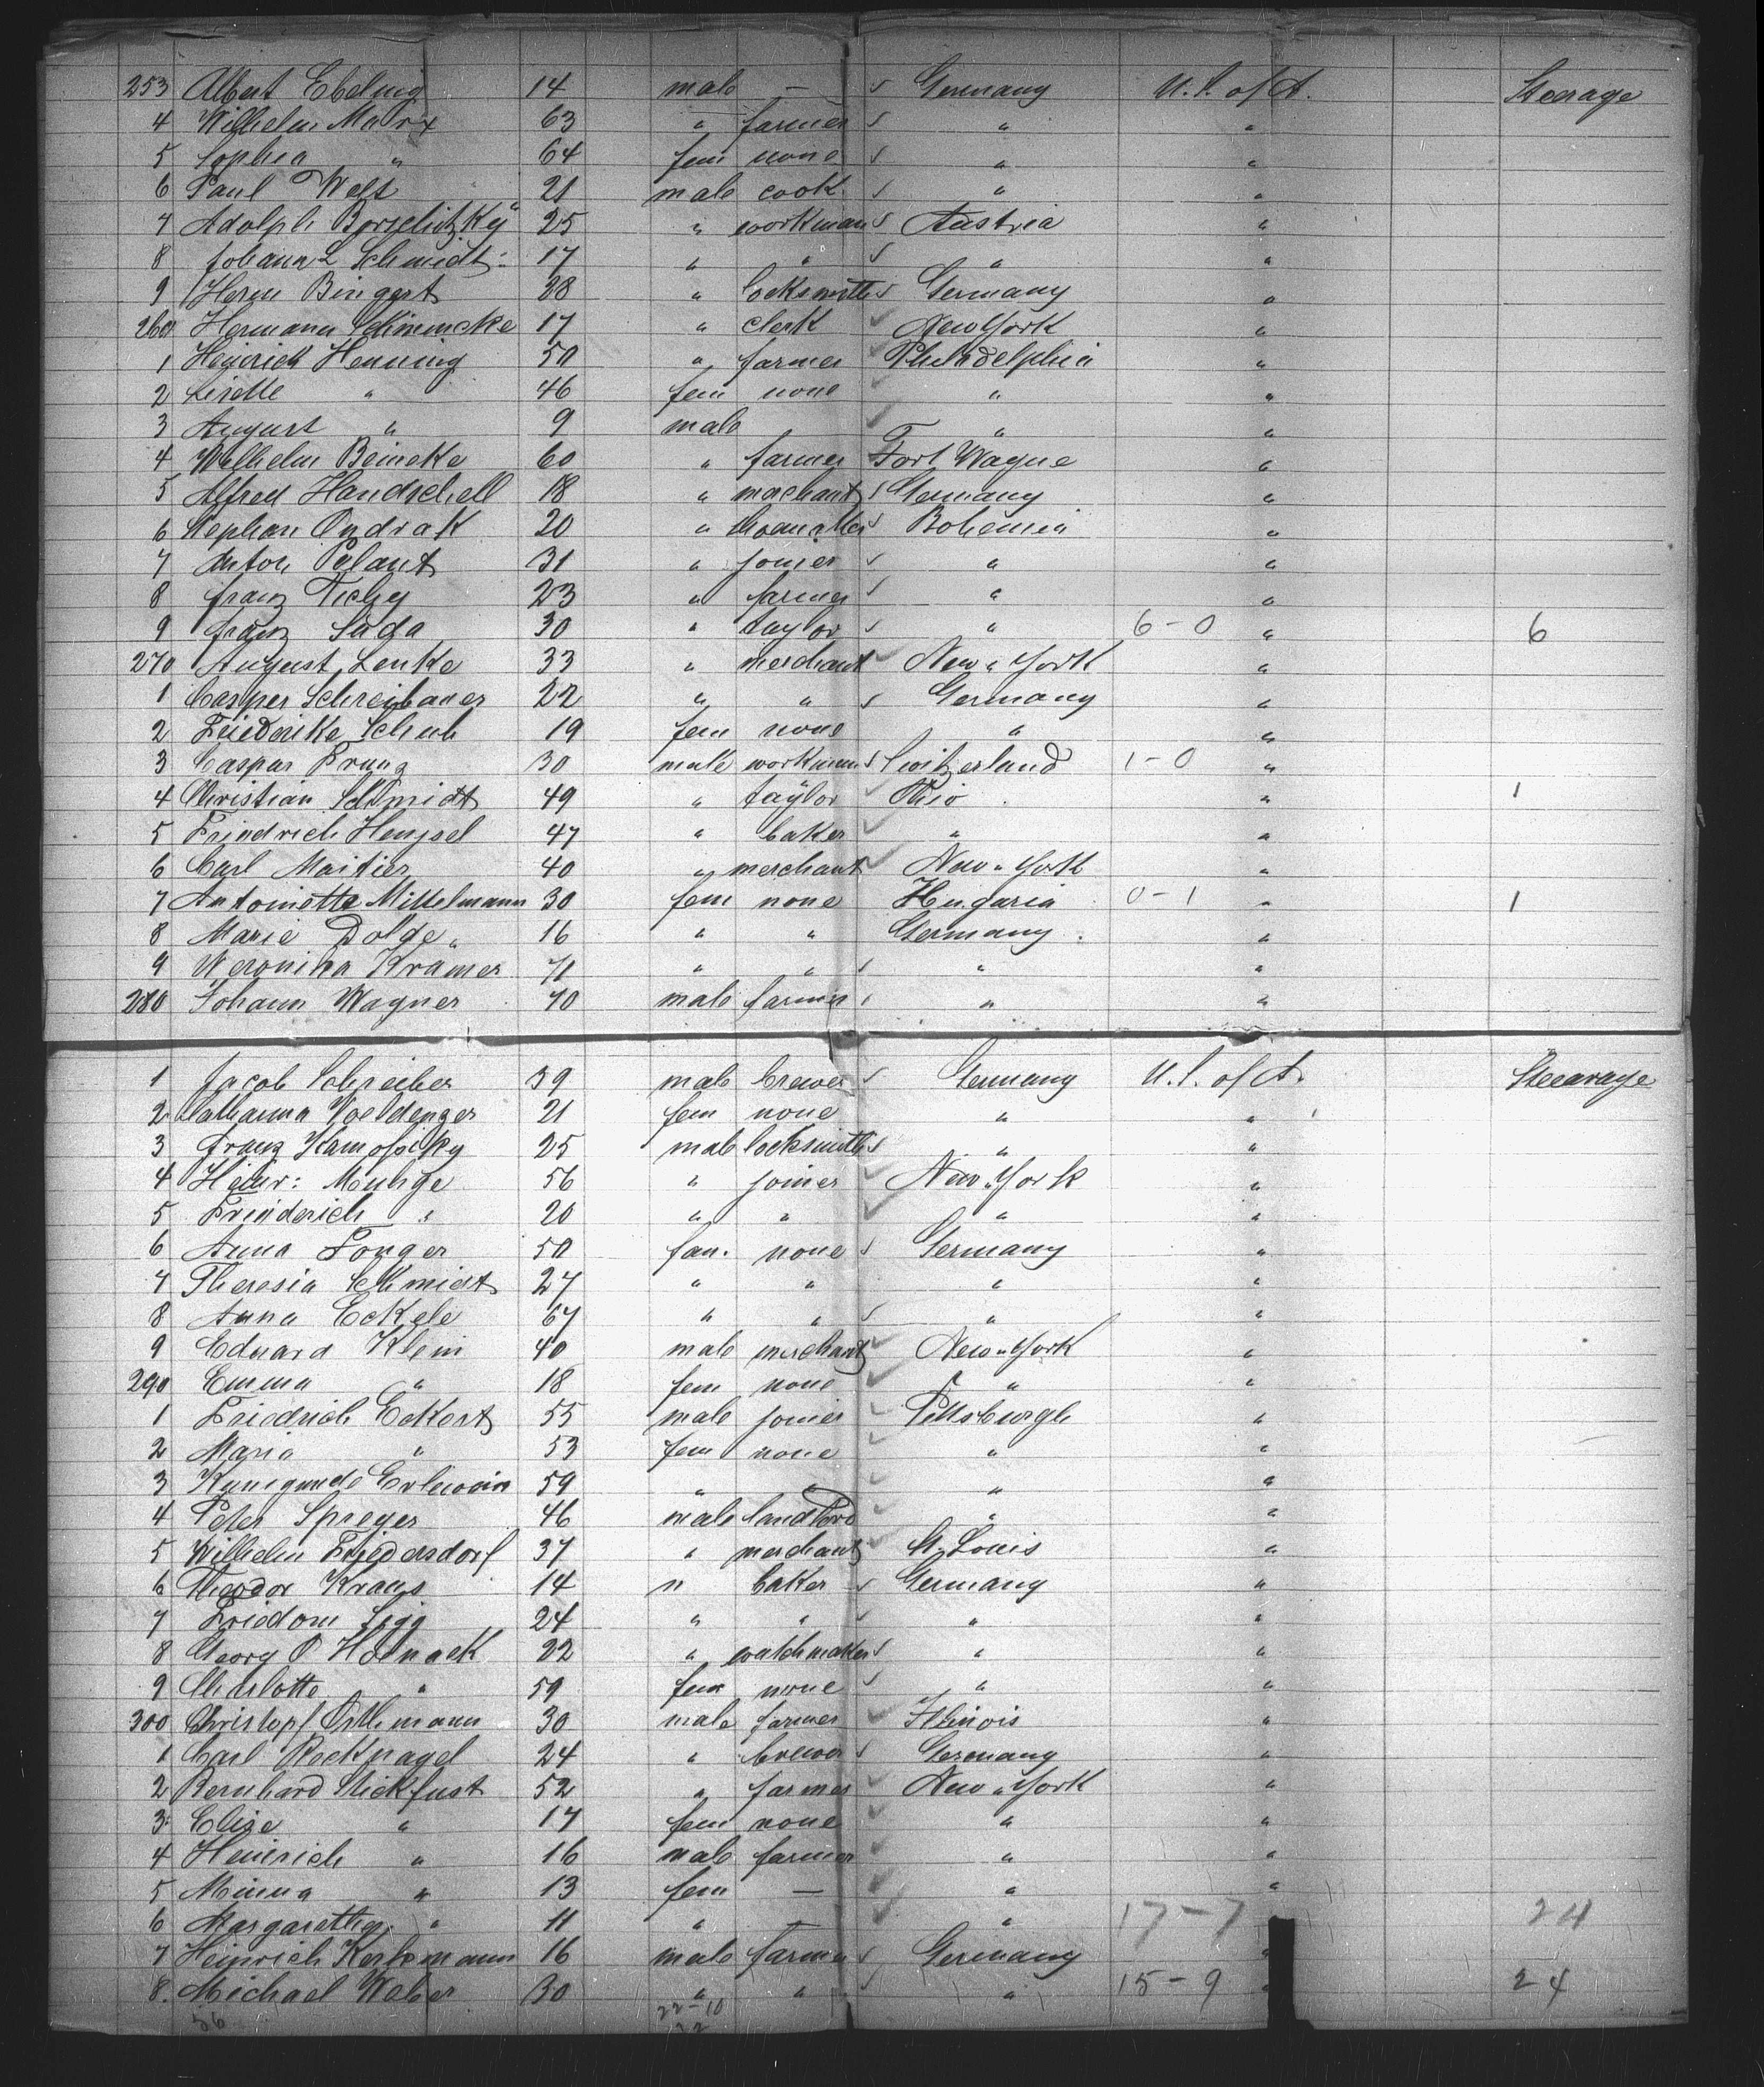 253 Albert Ebeling 14 male — s Germany U.S. of A. Steerage
4 Wilhelm Marx 63 " farmer s " "
5 Sophia " 64 fem none s " "
6 Paul Welt 21 male cook s " "
7 Adolph 25 " workman s Austria "
8 Johann L Schmidt 17 " " s " "
9 Herm Bingert 28 " locksmith s Germany "
260 Hermann Schimmcke 17 " clerk ✓ New York "
1 Heinrich Henning 50 " farmer ✓ Philadelphia "
2 Lisette " 46 fem none ✓ " "
3 August " 9 male ✓ " "
4 Wilhelm Beineke 60 " farmer Fort Wayne "
5 Alfred Handschell 18 " s Germany "
6 Stephan Ondrak 20 " s Bohemia "
7 Anton Polant 31 " joiner s " "
8 Franz Tichy 23 " farmer s " "
9 Franz Sada 30 " taylor s " 6-0 " 6
270 August Lenke 33 " merchant ✓ New " York "
1 Casper Schreibauer 22 " " s Germany "
2 Friederike Schub 19 fem none " "
3 Caspar 30 male workman s Switzerland 1-0 "
4 Christian Schmidt 49 " taylor ✓ Ohio " 1
5 Friedrich Hensel 47 " baker ✓ " "
6 Carl Maitier 40 " merchant ✓ New " York "
7 Antoinette Mittelmann 30 fem none Hungaria 0-1 " 1
8 Marie Dolge 16 " " Germany "
9 Weronika Kramer 71 " " s " "
280 Johann Wagner 70 male farmer s " "
1 Jacob Schreiber 39 male brewer s Germany U.S. of A. Steearage
2 Catharina Voeldenger 21 fem none " "
3 Franz 25 male locksmith s " "
4 Heinr: Muhge 56 " joiner ✓ New " York "
5 Friederich " 20 " " ✓ " "
6 Anna Fonger 50 fem. none s Germany "
7 Theresia Schmidt 27 " " " "
8 Anna Eckele 67 " " s " "
9 Eduard Klein 40 male merchant ✓ New " York "
290 Emma " 18 fem none ✓ " "
1 Friedrich Eckert 55 male joiner ✓ Pittsburgh "
2 Maria " 53 fem none ✓ " "
3 Kunigunde Erlewein 59 " " ✓ " "
4 Peter Spreyer 46 male landlord ✓ " "
5 Wilhelm Friedersdorf 37 " merchant ✓ St. Louis "
6 Theodor Kraus 14 " baker s Germany "
7 Fridom Sigg 24 " " s " "
8 Georg O 22 " watchmaker s " "
9 Charlotte " 59 fem none s " "
300 Christopf Osthmann 30 male farmer ✓ Illinois "
1 Carl Recknagel 24 " brewer s Germany "
2 Bernhard Stickfust 52 " farmer ✓ New " York "
3 Elise " 17 fem none ✓ " "
4 Heinrich " 16 male farmer ✓ " "
5 Minna " 13 fem — ✓ " "
6 Margaretha " 11 " — ✓ " 17-7 " 24
7 Heinrich Korkmann 16 male farmer s Germany "
8. Michael Weber 30 " " s " 15-9 " 24
56 22-10